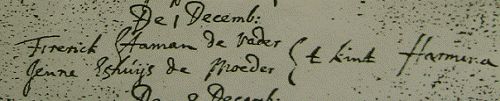 De 1 Decemb:
Frerick Haman de vader
Jenne Schuijs de Moeder { t kint Harmina
De 8 Decemb: